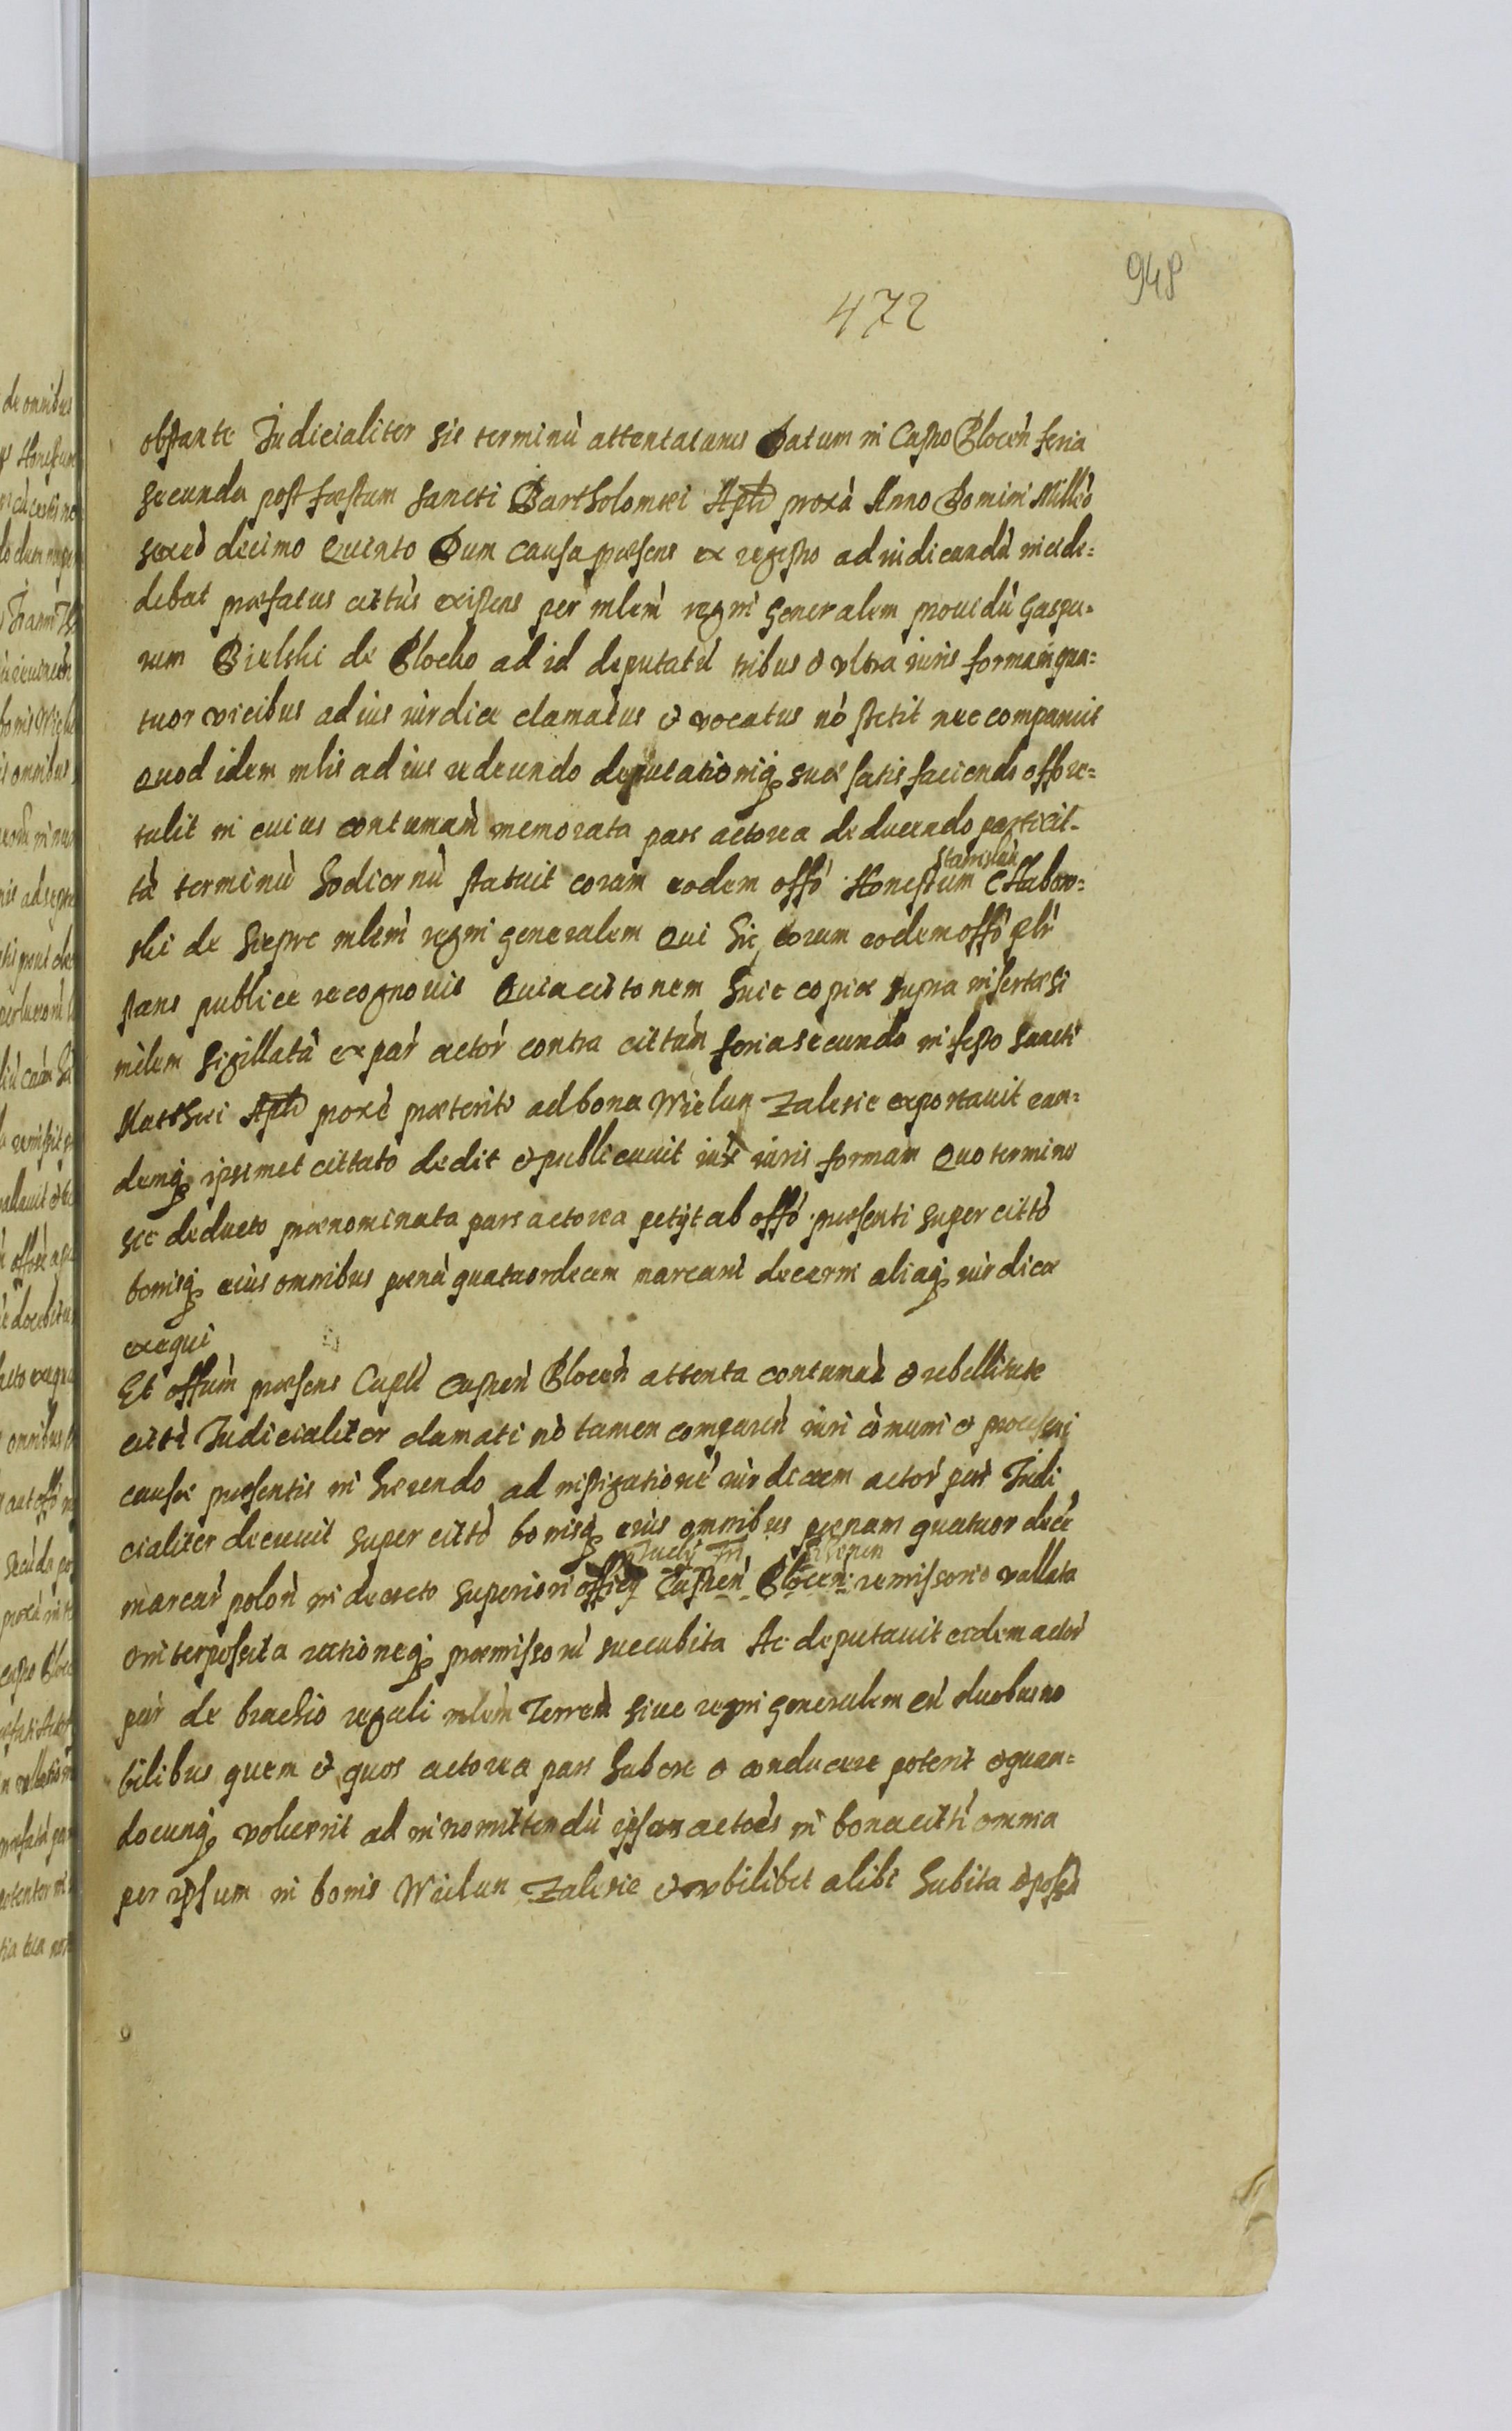 948
472
obstante Judicialiter sis terminũ attentaturus Datum in Castro Ploceñ feria
secunda post festum sancti Bartholomei Apłi proxà Anno Domini Milleõ
sexcẽ decimo Quinto Dum causa præsens ex regestro ad iudicandũ incide=
debat præfatus cittũs existens per mlem̃ regni generalem providũ Gaspa=
rum Bielski de Plocko ad id deputatũ tribus & ultra iuris formam qua=
tuor vicibus ad ius iurdice clamatus & vocatus nõ stetit nec comparuit
Quod idem mlis ad ius redeundo deputationiq; suæ satis faciendo offõ re=
tulit in cuius contumam̃ memorata pars actorea deducendo partĩ cit-
tã terminũ hodiernũ statuit coram eodem offõ Honestum Stanislaũ Chabow=
ski de Sierpc mlem̃ regni generalem Qui hic coram eodem offõ pl̃r
stans publice recognovit Quia cit̃tonem huic copiæ supra insertæ si
milem sigillatã ex par̃ actor̃ contra cittũm feria secunda in festo sancti
Matthæi Apłi proxe præterito ad bona Wielun Zalesie exportavit ean=
demq; ipsimet cittato dedit & publicavit iux̃ iuris formam Quo termino
sic deducto prænominata pars actorea petijt ab offõ præsenti super cittõ
bonisq; eius omnibus pœnã quatuordecem marcarũ decerni aliaq; iurdice
exequi
Et offum̃ præsens Capłe Castreñ Plocẽn attenta contumat̃ & rebellitate
citti Judicialiter clamati nõ tamen compareñ iuri cõmuni & processui
causæ præsentis in hærendo ad instigationẽ iurdicam actor̃ par̃ Judi
cialiter decrevit super cittõ bonisq; eius omnibus pœnam quatuor decẽ
marcar̃ polõn in decreto superiori officij Castreñ Plocen: remissorio vallata
& interposita rationeq; præmissorũ succubita Ac deputavit eidem actor̃
par̃ de brachio regali mlem̃ Terreñ sive regni generalem cũ duobus no
bilibus quem & quos actorea pars habere & conducere poterit & quan=
docunq; voluerit ad inromittendũ ipsam actoẽs in bona citti omnia
per ipsum in bonis Wielun Zalesie & ubilibet alibi habita & possã